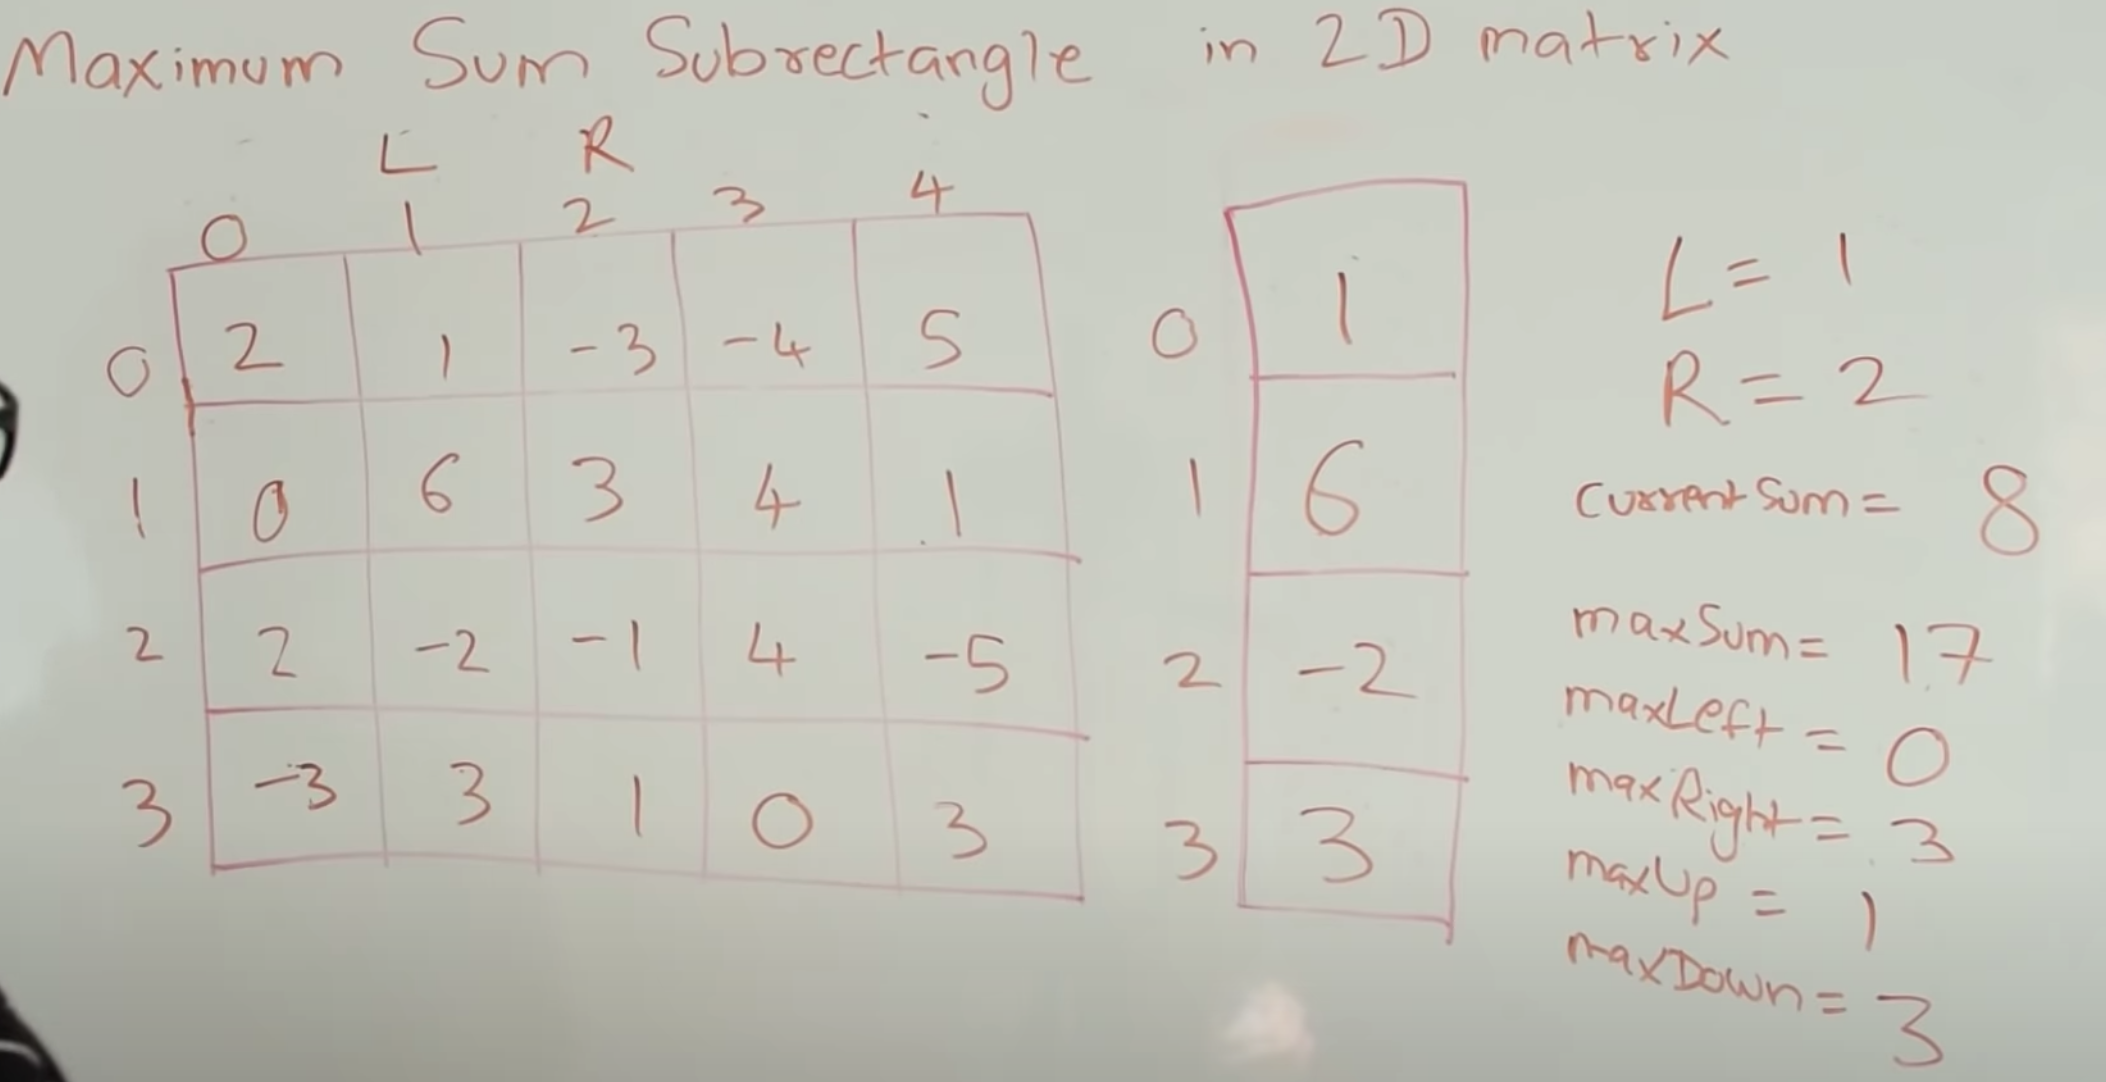 Maximum Sum Subrectangle in 2D matrix
L R
0 1 2 3 4
0 2 1 -3 -4 5
1 0 6 3 4 1
2 2 -2 -1 4 -5
3 -3 3 1 0 3
0 1
1 6
2 -2
3 3
L = 1
R = 2
currentSum = 8
maxSum = 17
maxLeft = 0
maxRight = 3
maxUp = 1
maxDown = 3